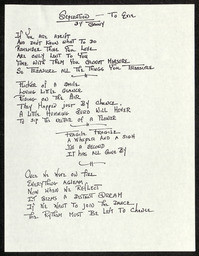 SEPARATION — TO ERIC
BY
IF YOU ARE ADRIFT
AND DON'T KNOW WHAT TO DO
REMEMBER THOSE YOU LOVE
ARE ONLY LOST TO YOU
TIME WITH THEM YOU CANNOT MEASURE
SO TREASURE ALL THE THINGS YOU TREASURE
FLICKER OF A SMILE
LOVING LITTLE GLANCE
RIDING ON THE AIR
THEY HAPPEN JUST BY CHANCE,
A LITTLE HUMMING BIRD WILL HOVER
TO SIP THE NECTAR OF A FLOWER
FRAGILE FRAGILE
A WHISPER AND A SIGH
IN A SECOND
IT HAS ALL GONE BY
ONCE WE WERE ON FIRE
EVERYTHING AGLEAM,
NOW WHEN WE REFLECT
IT SEEMS A DISTANT DREAM
IF WE WANT TO JOIN THE DANCE
THE RHYTHM MUST BE LEFT TO CHANCE